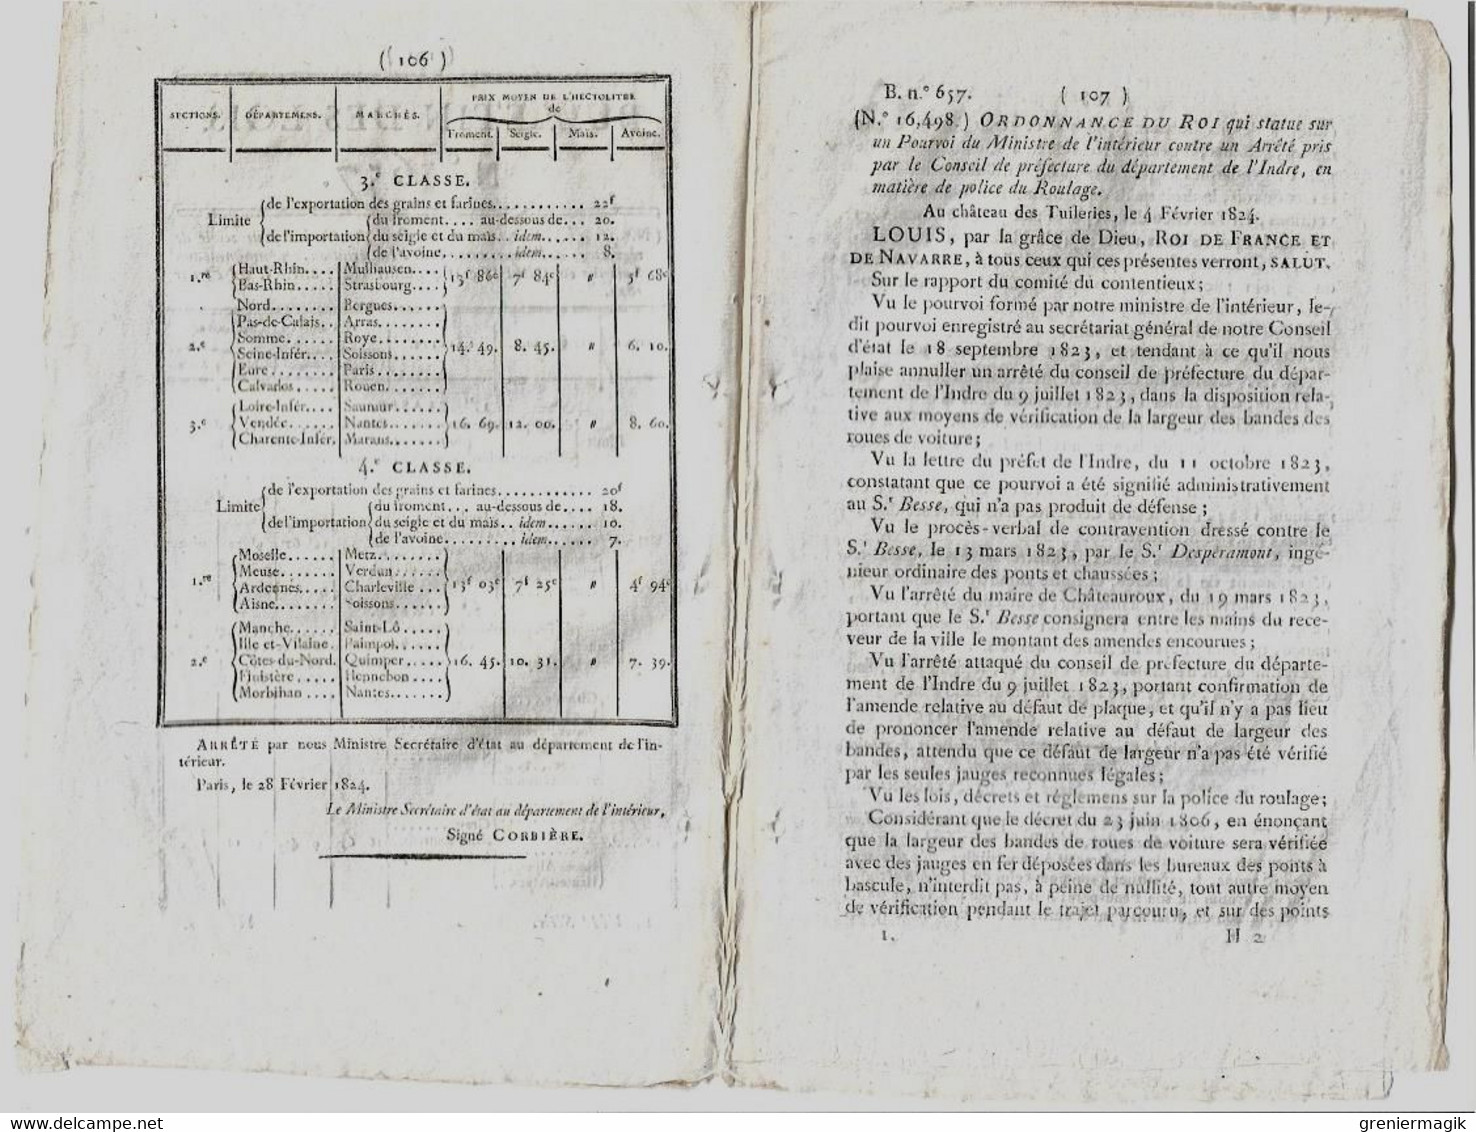 ( 106 )
PRIX MOYEN DE L'HECTOLITRE
de
SECTIONS. DÉPARTEMENS. MARCHÉS.
Froment. Seigle. Maïs. Avoine.
3.e CLASSE.
de l'exportation des grains et farines............ 22f
Limite du froment.... au-dessous de... 20.
de l'importation du seigle et du maïs.. idem...... 12.
de l'avoine.........idem...... 8.
Haut-Rhin.... Mulhausen....
1.re 13f 86c 7f 84c " 5f 68c
Bas-Rhin..... Strasbourg....
Nord........ Bergues......
Pas-de-Calais.. Arras........
Somme...... Roye........
2.e 14. 49. 8. 45. " 6. 10.
Seine-Infér.... Soissons......
Eure........ Paris........
Calvados..... Rouen.......
Loire-Infér.... Saumur......
3.e Vendée...... Nantes...... 16. 69. 12. 00. " 8. 60.
Charente-Infér. Marans......
4.e CLASSE.
de l'exportation des grains et farines............ 20f
Limite du froment... au-dessous de.... 18.
de l'importation du seigle et du maïs.. idem...... 10.
de l'avoine......... idem...... 7.
Moselle...... Metz........
Meuse....... Verdun......
1.re 13f 03c 7f 25c " 4f 94c
Ardennes..... Charleville ...
Aisne........ Soissons.....
Manche...... Saint-Lô.....
Ille-et-Vilaine. Paimpol......
2.e Côtes-du-Nord. Quimper..... 16. 45. 10. 31. " 7. 39.
Finistère..... Hennebon ....
Morbihan .... Nantes.......
ARRÊTÉ par nous Ministre Secrétaire d'état au département de l'in-
térieur.
Paris, le 28 Février 1824.
Le Ministre Secrétaire d'état au département de l'intérieur,
Signé CORBIÈRE.
B. n.° 657. ( 107 )
(N.° 16,498.) ORDONNANCE DU ROI qui statue sur
un Pourvoi du Ministre de l'intérieur contre un Arrêté pris
par le Conseil de préfecture du département de l'Indre, en
matière de police du Roulage.
Au château des Tuileries, le 4 Février 1824.
LOUIS, par la grâce de Dieu, ROI DE FRANCE ET
DE NAVARRE, à tous ceux qui ces présentes verront, SALUT.
Sur le rapport du comité du contentieux;
Vu le pourvoi formé par notre ministre de l'intérieur, le-
dit pourvoi enregistré au secrétariat général de notre Conseil
d'état le 18 septembre 1823, et tendant à ce qu'il nous
plaise annuller un arrêté du conseil de préfecture du dépar-
tement de l'Indre du 9 juillet 1823, dans la disposition rela-
tive aux moyens de vérification de la largeur des bandes des
roues de voiture;
Vu la lettre du préfet de l'Indre, du 11 octobre 1823,
constatant que ce pourvoi a été signifié administrativement
au S.r Besse, qui n'a pas produit de défense;
Vu le procès-verbal de contravention dressé contre le
S.r Besse, le 13 mars 1823, par le S.r Desperamont, ingé-
nieur ordinaire des ponts et chaussées;
Vu l'arrêté du maire de Châteauroux, du 19 mars 1823,
portant que le S.r Besse consignera entre les mains du rece-
veur de la ville le montant des amendes encourues;
Vu l'arrêté attaqué du conseil de préfecture du départe-
ment de l'Indre du 9 juillet 1823, portant confirmation de
l'amende relative au défaut de plaque, et qu'il n'y a pas lieu
de prononcer l'amende relative au défaut de largeur des
bandes, attendu que ce défaut de largeur n'a pas été vérifié
par les seules jauges reconnues légales;
Vu les lois, décrets et réglemens sur la police du roulage;
Considérant que le décret du 23 juin 1806, en énonçant
que la largeur des bandes de roues de voiture sera vérifiée
avec des jauges en fer déposées dans les bureaux des ponts à
bascule, n'interdit pas, à peine de nullité, tout autre moyen
de vérification pendant le trajet parcouru, et sur des points
1. H 2
greniermagik